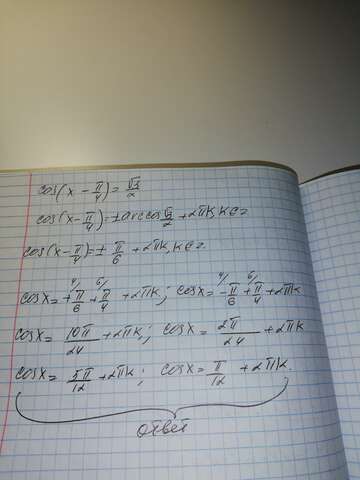 cos(x - π/4) = √3/2
cos(x - π/4) = ± arccos √3/2 + 2πk, k ∈ z.
cos(x - π/4) = ± π/6 + 2πk, k ∈ z.
cos x = + 4/ π/6 + 6/ π/4 + 2πk; cos x = - 4/ π/6 + 6/ π/4 + 2πk
cos x = 10π/24 + 2πk; cos x = 2π/24 + 2πk
cos x = 5π/12 + 2πk; cos x = π/12 + 2πk.
ответ